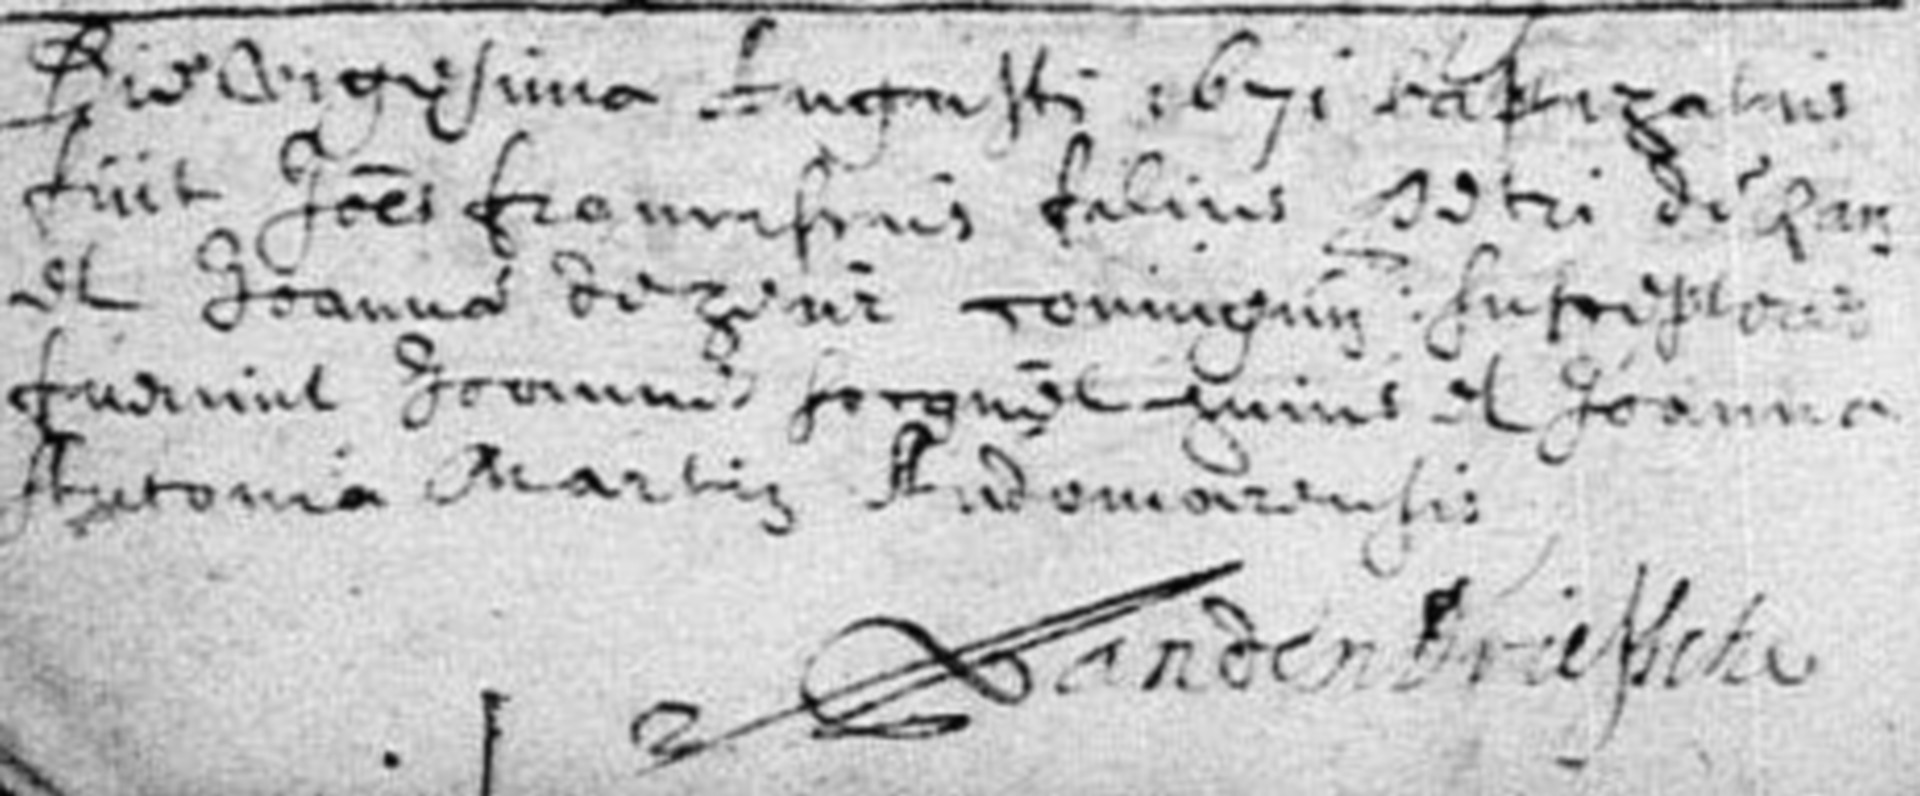 Die Vigesima Augusti 1671 baptizatus
fuit Joẽs franciscus filius Petri de Ran
et Joanna de conjugum: susceptores
fuerunt Joannes et Joanna
Antonia Martin Audomarensis
Vandenbriessche